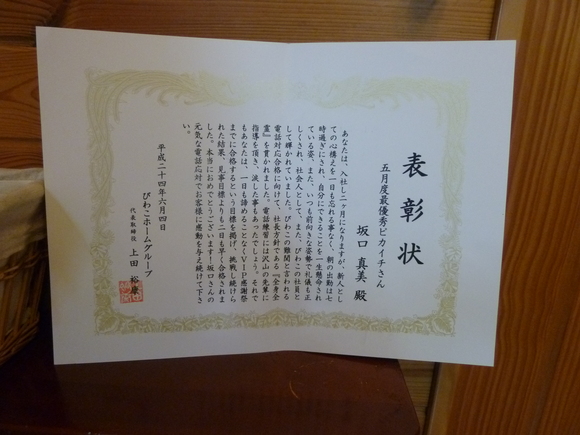 表彰状
五月度最優秀ピカイチさん
坂口 真美 殿
あなたは、入社し二ヶ月になりますが、新人とし
ての心構えを一日も忘れる事なく、朝の出勤は七
時過ぎにされ、自分にできることを一生懸命され
ている姿、また、いつも前向きな姿勢で礼儀も正
しくされ、社会人として、また、びわこの社員と
して輝かれていました。びわこの難関と言われる
電話対応合格に向けて、社長方針である『全身全
霊』を貫かれました。電話練習には沢山の先輩に
指導を頂き、涙した事もあったでしょう。それで
もあなたは、一日も諦めることなくVIP感謝祭
までに合格するという目標を掲げ、挑戦し続けら
れた結果、見事目標よりも二日も早く合格されま
した。本当におめでとうございます。坂口さんの
元気な電話応対でお客様に感動を与え続けて下さ
い。
平成二十四年六月四日
びわこホームグループ
代表取締役 上田 裕康